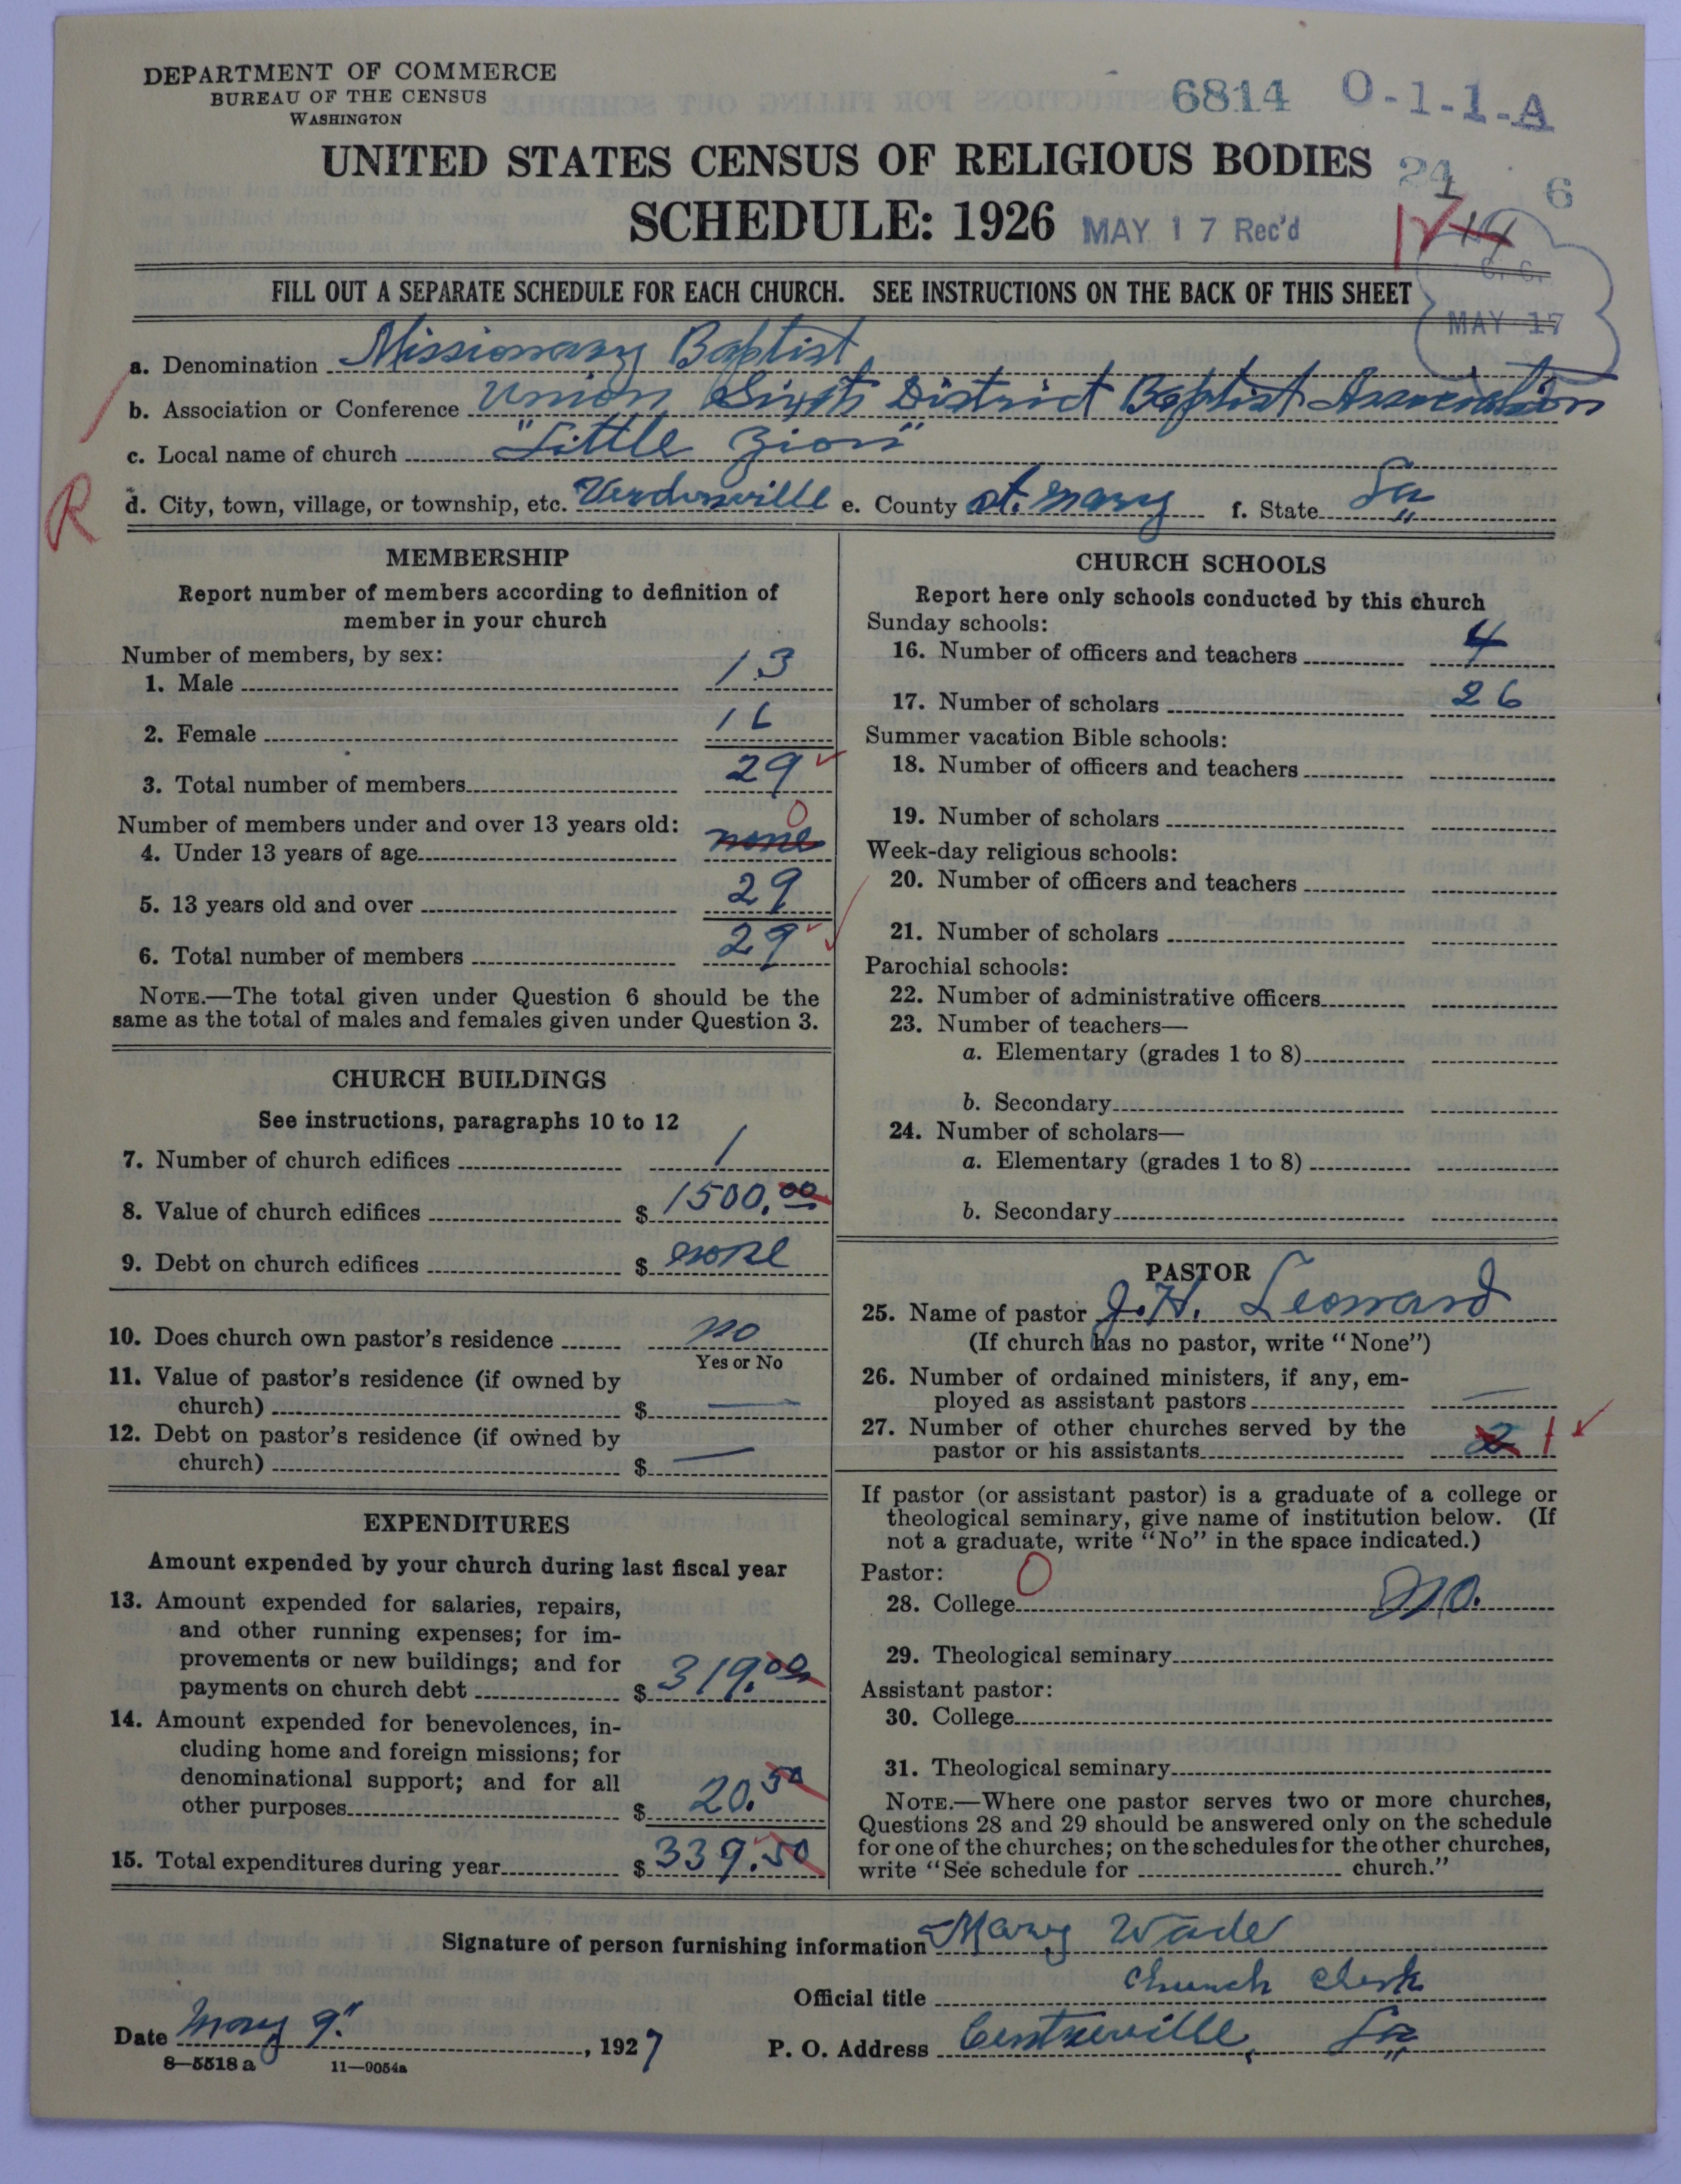 DEPARTMENT OF COMMERCE
BUREAU OF THE CENSUS
WASHINGTON
6814 0-1-1-A
UNITED STATES CENSUS OF RELIGIOUS BODIES
24 1 6
SCHEDULE: 1926 MAY 17 Rec'd
G. C.
MAY 17
FILL OUT A SEPARATE SCHEDULE FOR EACH CHURCH. SEE INSTRUCTIONS ON THE BACK OF THIS SHEET
a. Denomination Missionary Baptist
b. Association or Conference Union Sixth District Baptist Association
c. Local name of church "Little Zion"
R
d. City, town, village, or township, etc. Verdunville e. County St. Mary f. State La
MEMBERSHIP
Report number of members according to definition of
member in your church
Number of members, by sex:
1. Male 13
2. Female 16
3. Total number of members 29
Number of members under and over 13 years old: 0
4. Under 13 years of age none
5. 13 years old and over 29
6. Total number of members 29
NOTE.—The total given under Question 6 should be the
same as the total of males and females given under Question 3.
CHURCH BUILDINGS
See instructions, paragraphs 10 to 12
7. Number of church edifices 1
8. Value of church edifices $ 1500.00
9. Debt on church edifices $ none
10. Does church own pastor's residence no
Yes or No
11. Value of pastor's residence (if owned by
church) $ —
12. Debt on pastor's residence (if owned by
church) $ —
EXPENDITURES
Amount expended by your church during last fiscal year
13. Amount expended for salaries, repairs,
and other running expenses; for im-
provements or new buildings; and for
payments on church debt $ 319.00
14. Amount expended for benevolences, in-
cluding home and foreign missions; for
denominational support; and for all
other purposes $ 20.50
15. Total expenditures during year $ 339.50
CHURCH SCHOOLS
Report here only schools conducted by this church
Sunday schools:
16. Number of officers and teachers 4
17. Number of scholars 26
Summer vacation Bible schools:
18. Number of officers and teachers
19. Number of scholars
Week-day religious schools:
20. Number of officers and teachers
21. Number of scholars
Parochial schools:
22. Number of administrative officers
23. Number of teachers—
a. Elementary (grades 1 to 8)
b. Secondary
24. Number of scholars—
a. Elementary (grades 1 to 8)
b. Secondary
PASTOR
25. Name of pastor J. H. Leonard
(If church has no pastor, write "None")
26. Number of ordained ministers, if any, em-
ployed as assistant pastors —
27. Number of other churches served by the
pastor or his assistants 2 1
If pastor (or assistant pastor) is a graduate of a college or
theological seminary, give name of institution below. (If
not a graduate, write "No" in the space indicated.)
Pastor: 0
28. College no.
29. Theological seminary
Assistant pastor:
30. College
31. Theological seminary
NOTE.—Where one pastor serves two or more churches,
Questions 28 and 29 should be answered only on the schedule
for one of the churches; on the schedules for the other churches,
write "See schedule for church."
Signature of person furnishing information Mary Wade
Official title Church Clerk
Date May 9", 1927 P. O. Address Centreville, La
8—5518 a 11—9054a